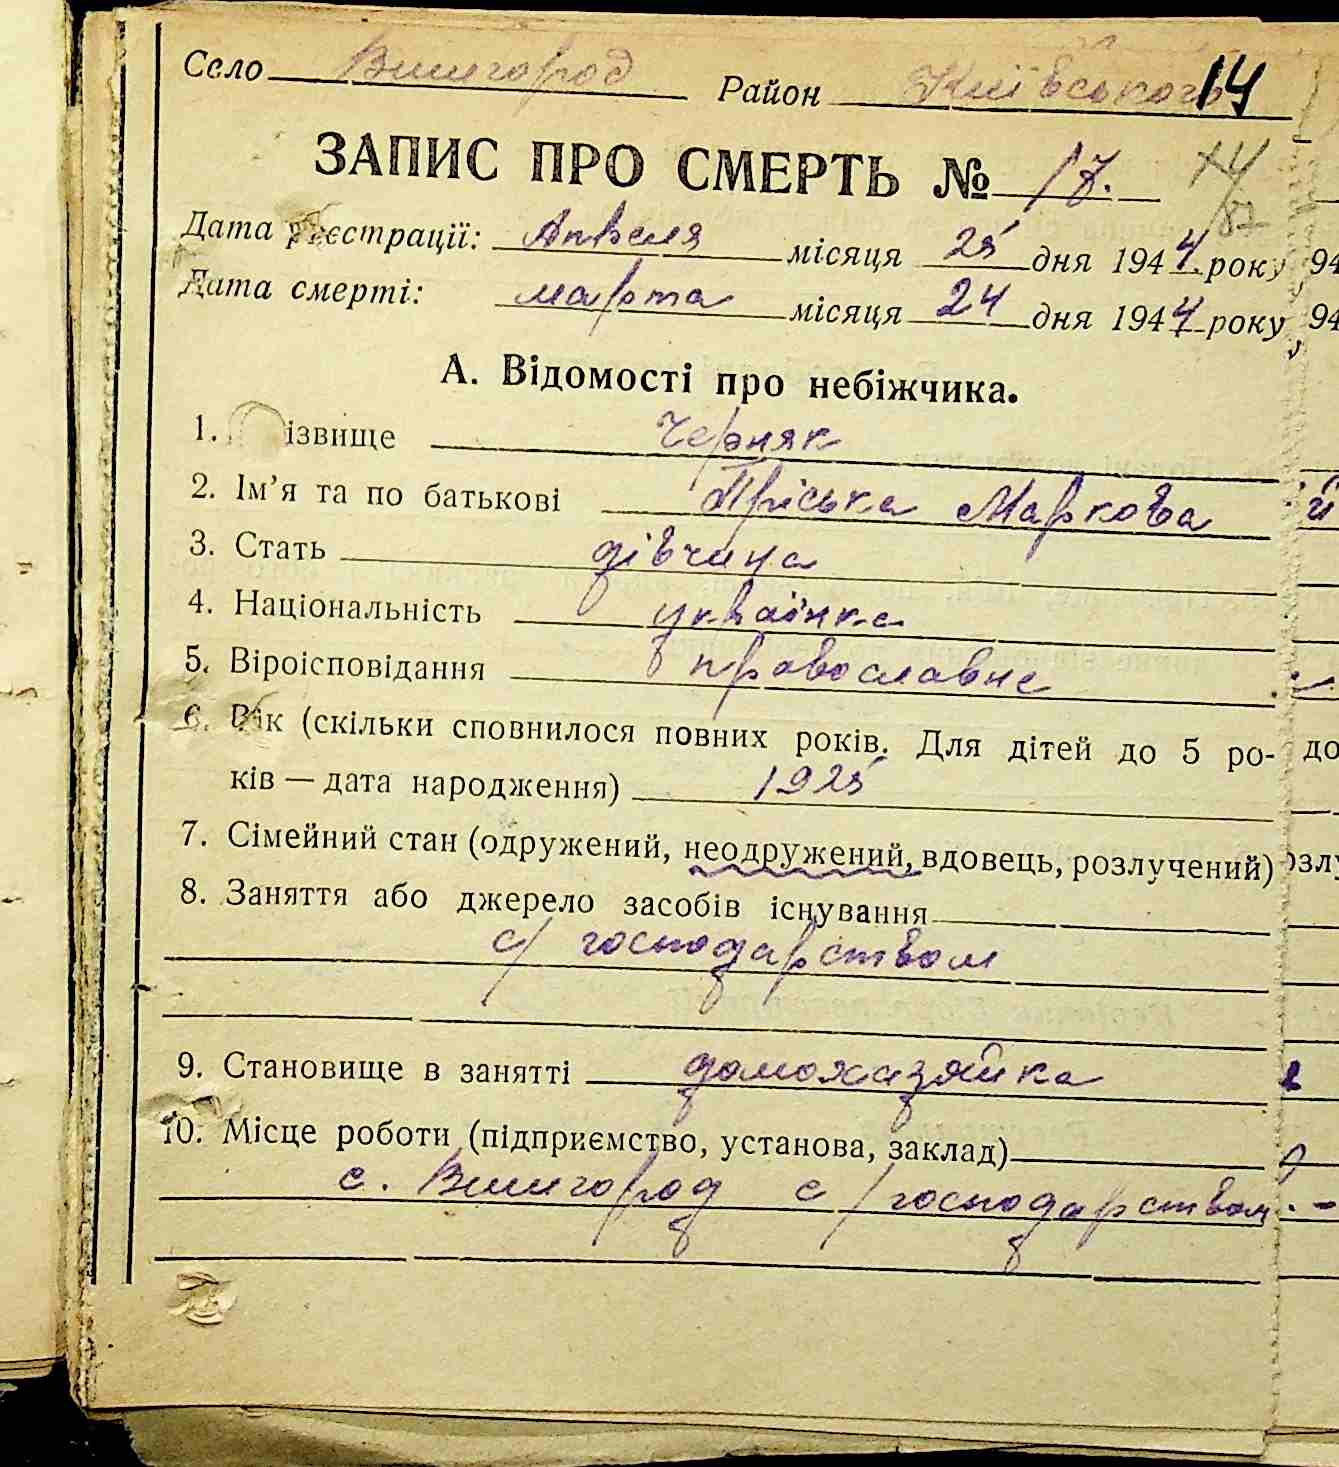 Село Вишгород Район Київського 14
ЗАПИС ПРО СМЕРТЬ № 17.
Дата реєстрації: Апреля місяця 25 дня 1944 року
Дата смерті: марта місяця 24 дня 1944 року
А. Відомості про небіжчика.
1. ізвище Черняк
2. Ім'я та по батькові Пріська Маркова
3. Стать дівчина
4. Національність українка
5. Віроісповідання православне
6. Вік (скільки сповнилося повних років. Для дітей до 5 ро-
ків — дата народження) 1925
7. Сімейний стан (одружений, неодружений, вдовець, розлучений)
8. Заняття або джерело засобів існування
с/господарством
9. Становище в занятті домохазяйка
10. Місце роботи (підприємство, установа, заклад)
с. Вишгород с/господарством